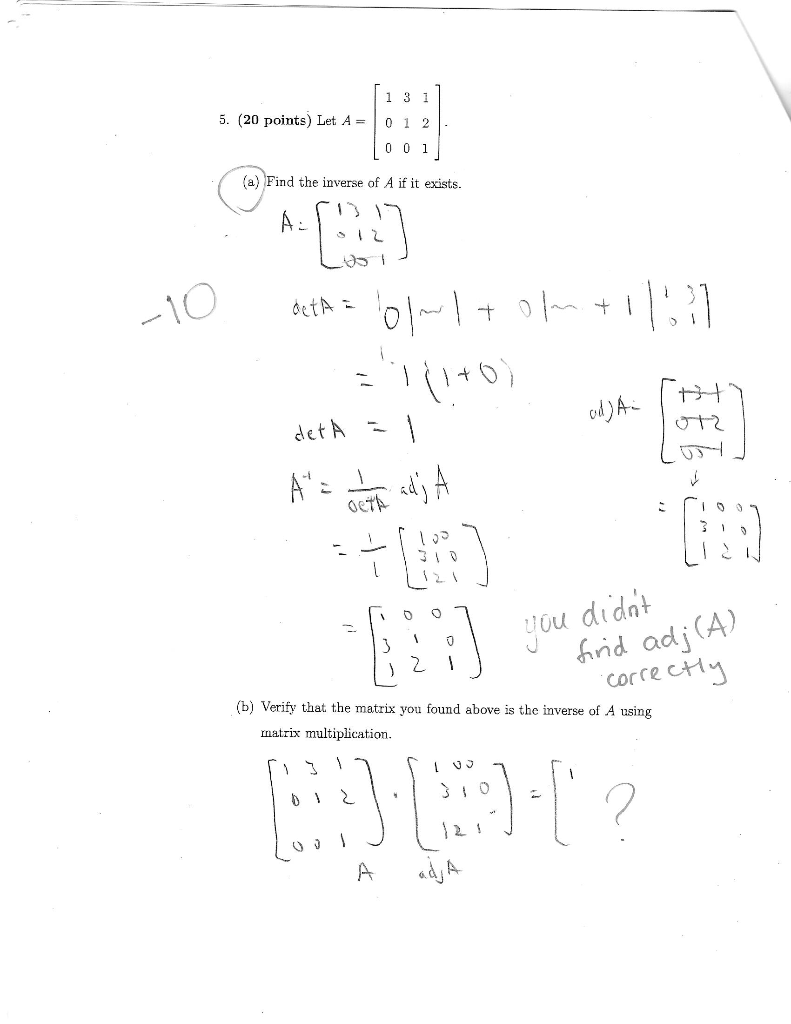 5. (20 points) Let A = [ 1 3 1
0 1 2
0 0 1 ].
(a) Find the inverse of A if it exists.
A = [ 1 3 1
0 1 2
0 0 1 ]
-10
detA = 0| | + 0| + 1 | 1 3
0 1 |
= 1 (1+0)
detA = 1
adjA = [ 1 3 1
0 1 2
0 0 1 ]
↓
= [ 1 0 0
3 1 0
1 2 1 ]
A⁻¹ = 1/detA adj A
= 1/1 [ 1 0 0
3 1 0
1 2 1 ]
= [ 1 0 0
3 1 0
1 2 1 ]
you didn't
find adj(A)
correctly
(b) Verify that the matrix you found above is the inverse of A using
matrix multiplication.
[ 1 3 1
0 1 2
0 0 1 ] · [ 1 0 0
3 1 0
1 2 1 ] = [ 1 ?
A adjA